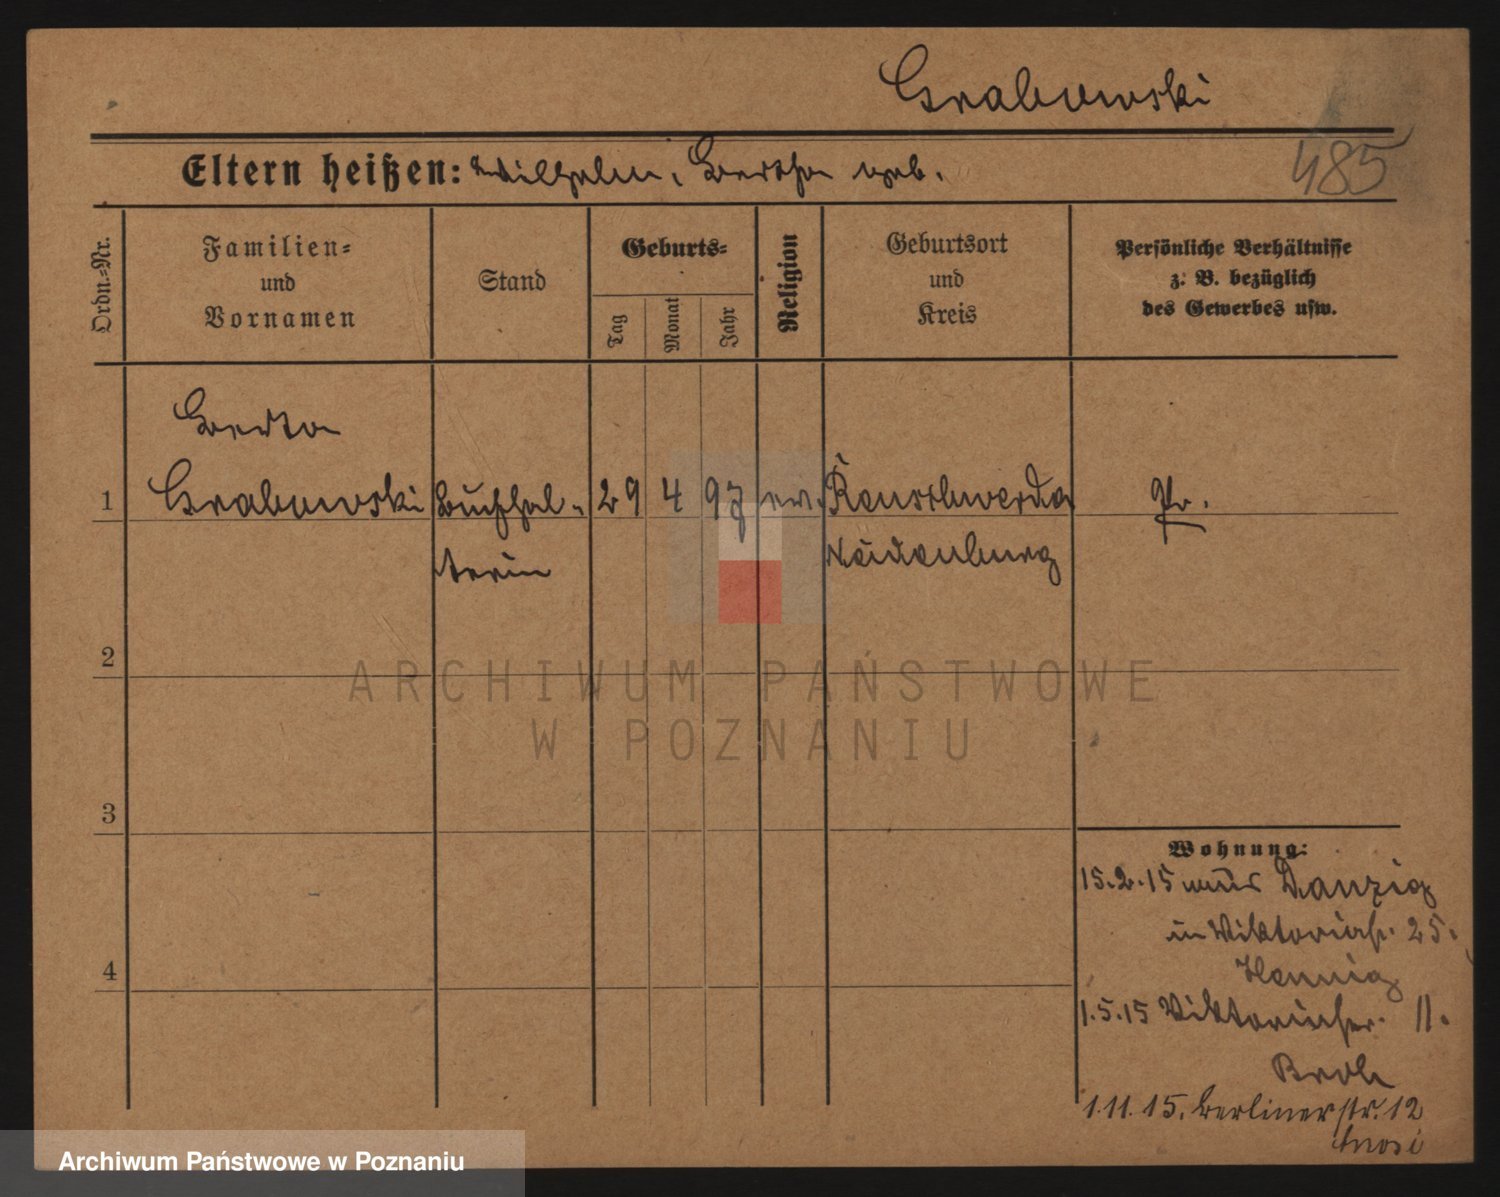 Grabowski
485
Eltern heißen: Wilhelm, Bertha geb.
Ordn.-Nr.
Familien-
und
Vornamen
Stand
Geburts-
Tag
Monat
Jahr
Religion
Geburtsort
und
Kreis
Persönliche Verhältnisse
z. B. bezüglich
des Gewerbes usw.
Berta
1 Grabowski Buchhal- 29 4 97 ev. Pr.
terin Neidenburg
2
3
4
Wohnung:
15.2.15 aus Danzig
in Viktoriastr. 25.
Hennig
1.5.15 Viktoriastr. 11.
1.11.15. Berlinerstr. 12
ARCHIWUM PAŃSTWOWE
W POZNANIU
Archiwum Państwowe w Poznaniu